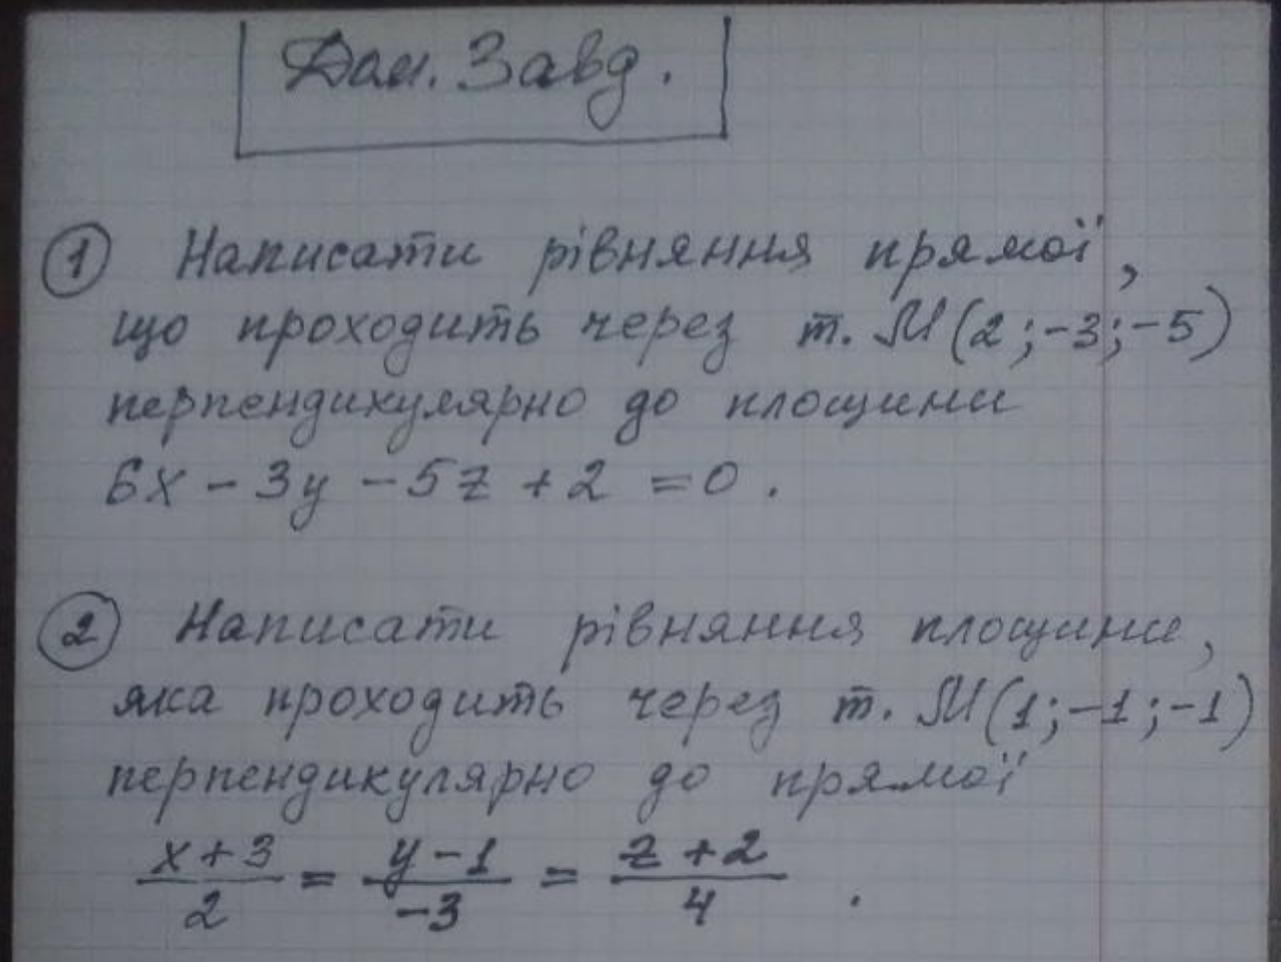 Дом. Завд.
① Написати рівняння прямої,
що проходить через т. M(2;-3;-5)
перпендикулярно до площини
6x - 3y - 5z + 2 = 0.
② Написати рівняння площини,
яка проходить через т. M(1;-1;-1)
перпендикулярно до прямої
x+3 / 2 = y-1 / -3 = z+2 / 4 .